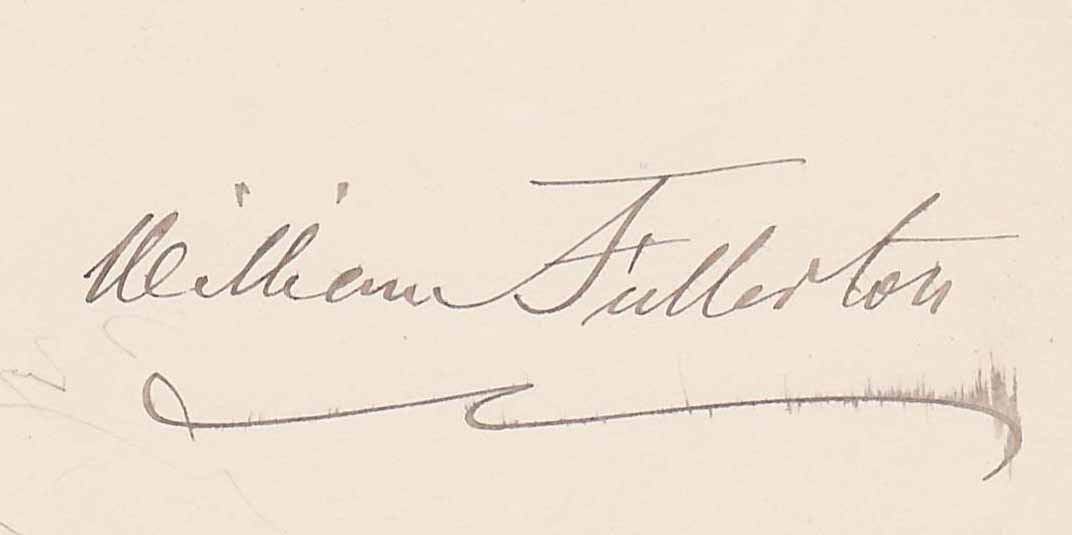 William Fullerton